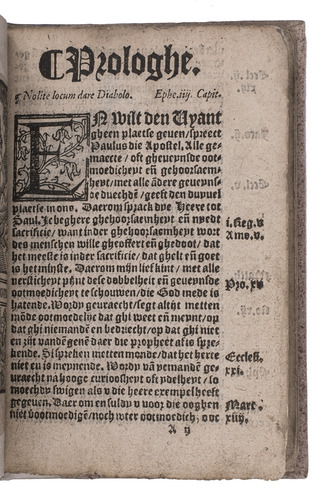 ¶Prologhe.
Nolite locum dare Diabolo. Ephe.iiij. Capit.
EN wilt den Uyant
gheen plaetse geuen/spreect
Paulus die Apostel. Alle ge-
maecte/oft gheueynsde oot-
moedicheyt eñ gehoorsaem-
heyt/met alle ãdere geueyns-
de duechdẽ/geeft den duyuel
plaetse in ons. Daerom sprack die Heere tot
Saul. Ic beghere ghehoorsaemheyt eñ nyedt
sacrificie/want inder ghehoorsaemheyt wort
des menschen wille gheoffert eñ ghedoot/dat
het meeste is inder sacrificie/dat ghelt eñ goet
is het minste. Daerom mijn lief kint/met alle
dese dobbelheit eñ geueynsde
ootmoedicheyt te schouwen/die God mede is
hatende. Wordy geuraecht/segt altijt metten
mõde ootmoedelijc dat ghy weet eñ meynt/op
dat ghi niemandẽ en bedriecht/op dat ghi niet
en zijt vandẽ genẽ daer die propheet af is spre-
kende. Si spreken metten monde/dat het herte
niet en is meynende. Wordy vã yemandẽ ge-
uraecht na hooge curiosheyt oft ydelheyt/
ootmoedich als v die heere exempel heeft
gegeuen. Daer om en suldy v voor die ooghen
niet ootmoedigẽ/noch ooc
A ij
i.Reg.v
Amo.v.
Pro.xv
Ecclesi.
xxi.
Mare.
xiiij.